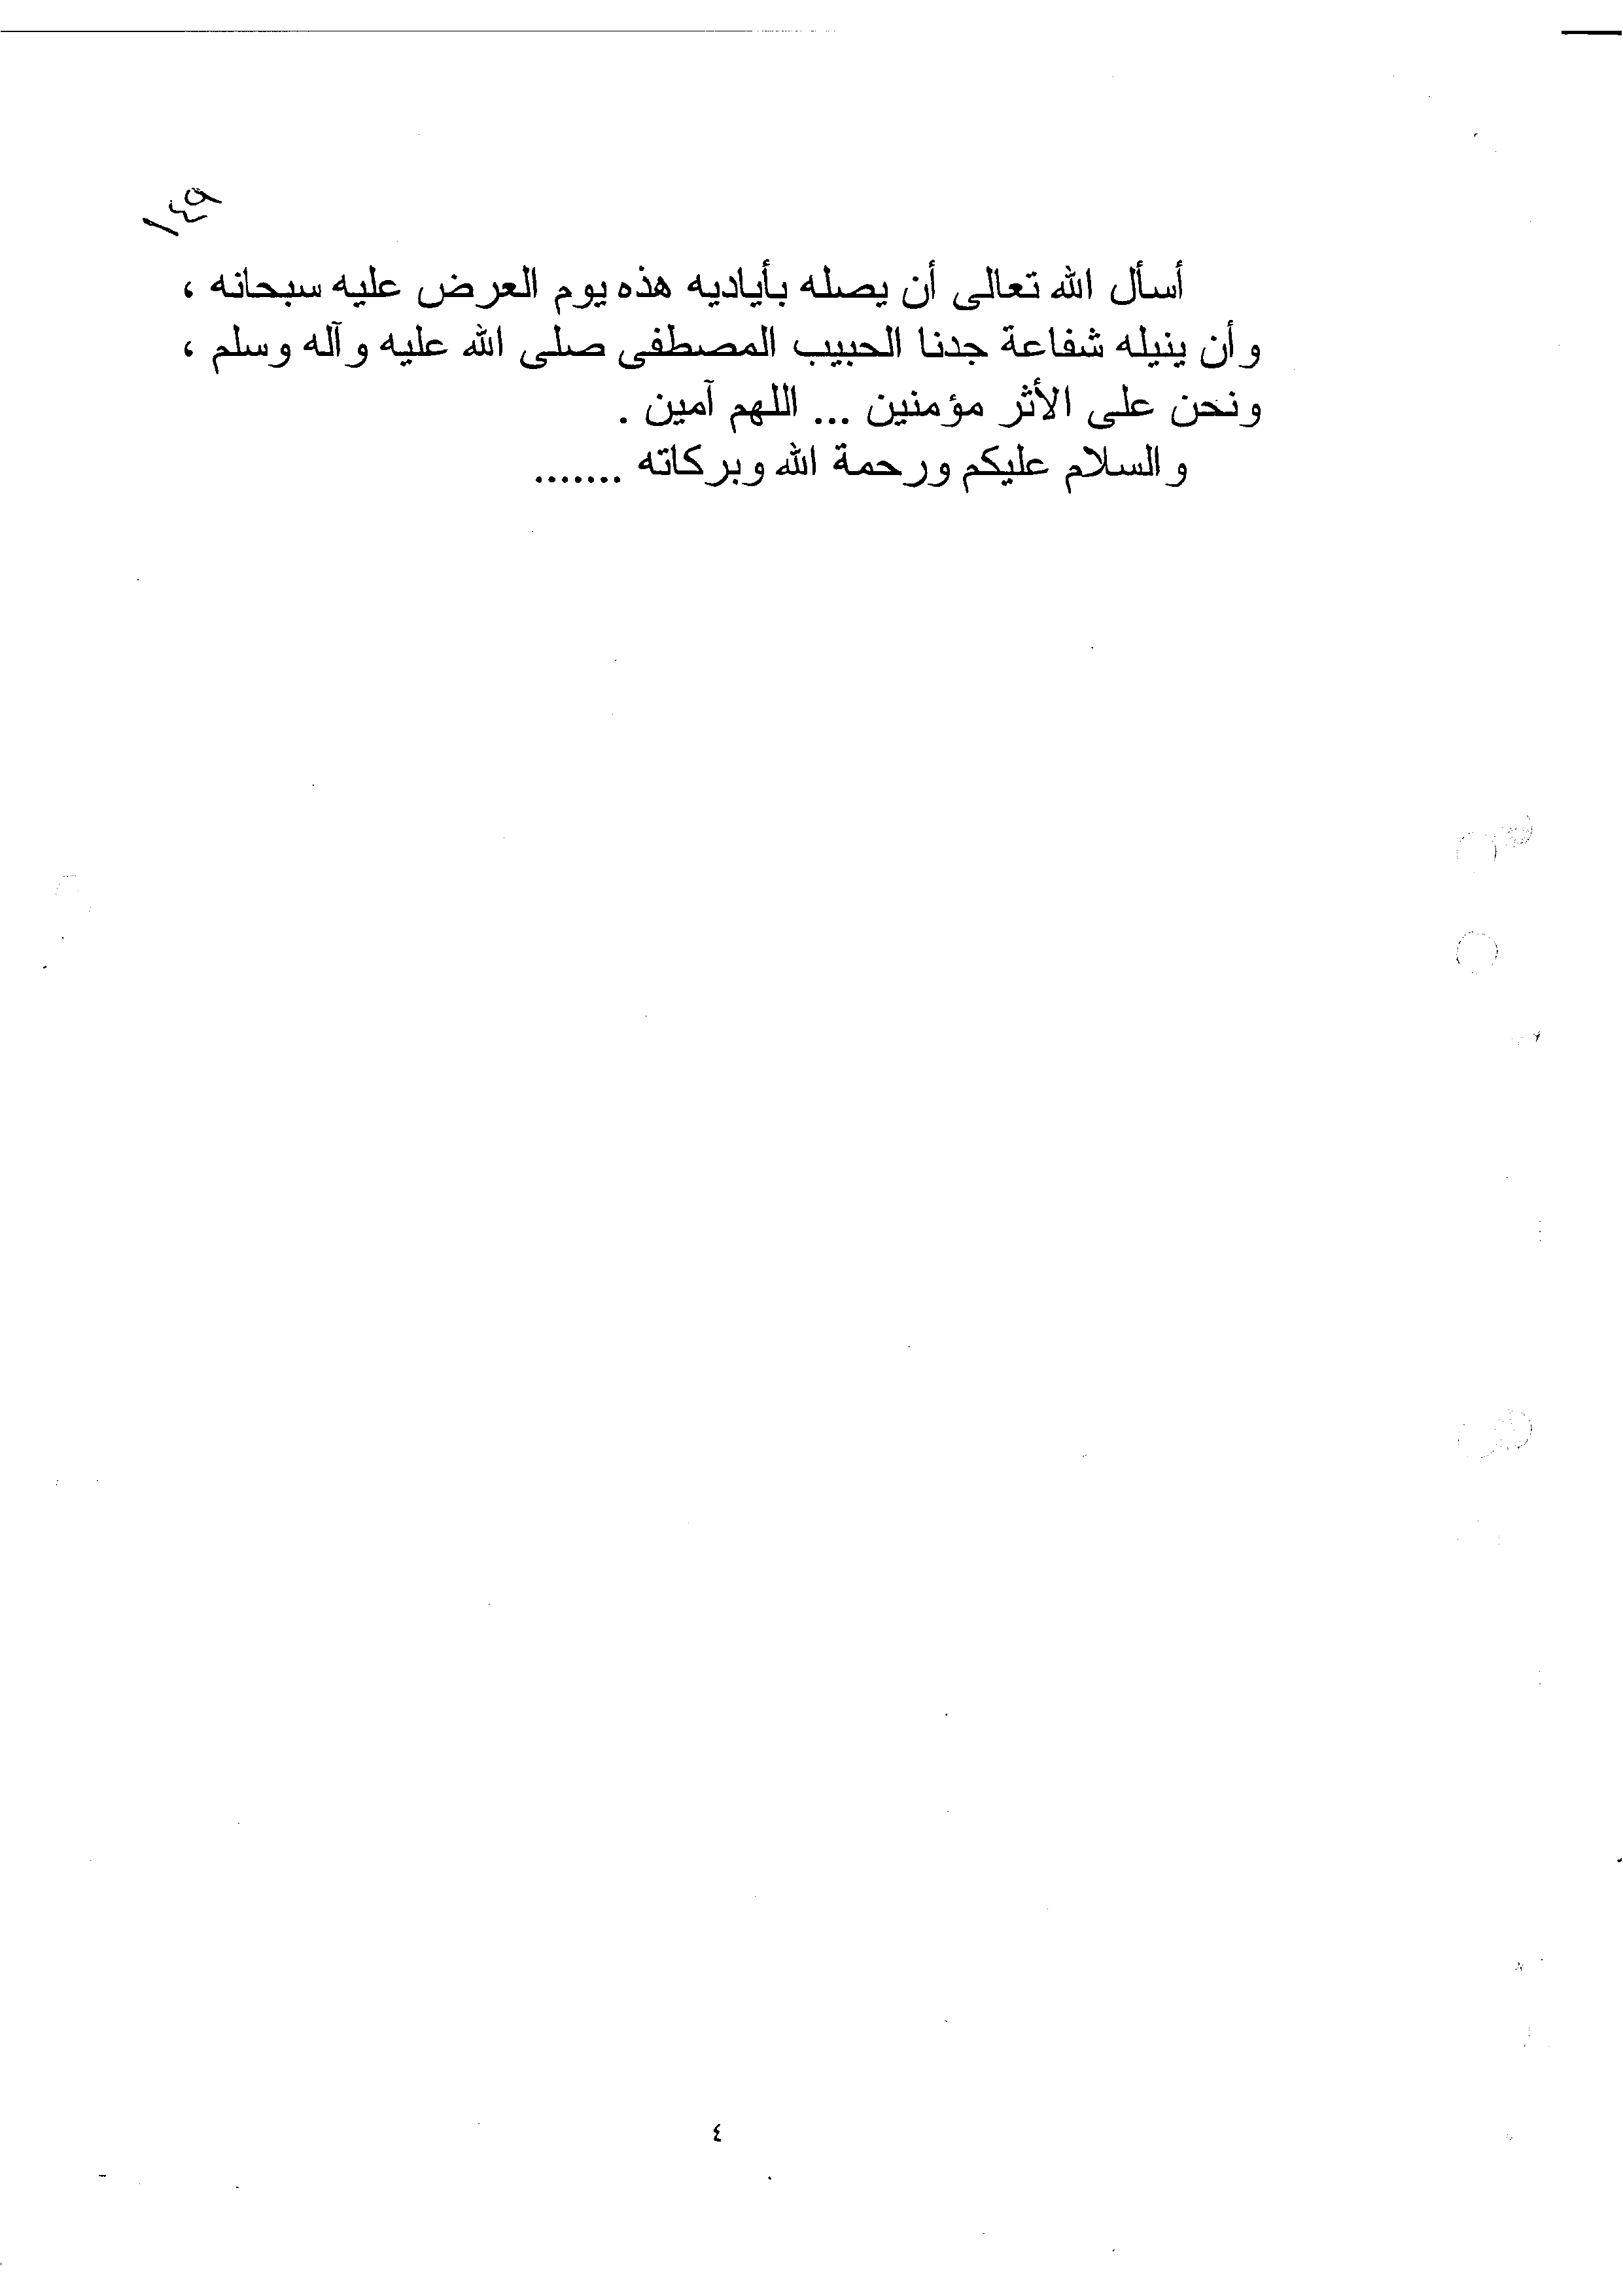 ١٤٩
أسأل الله تعالى أن يصله بأياديه هذه يوم العرض عليه سبحانه ،
وأن ينيله شفاعة جدنا الحبيب المصطفى صلى الله عليه وآله وسلم ،
ونحن على الأثر مؤمنين ... اللهم آمين .
والسلام عليكم ورحمة الله وبركاته .......
٤